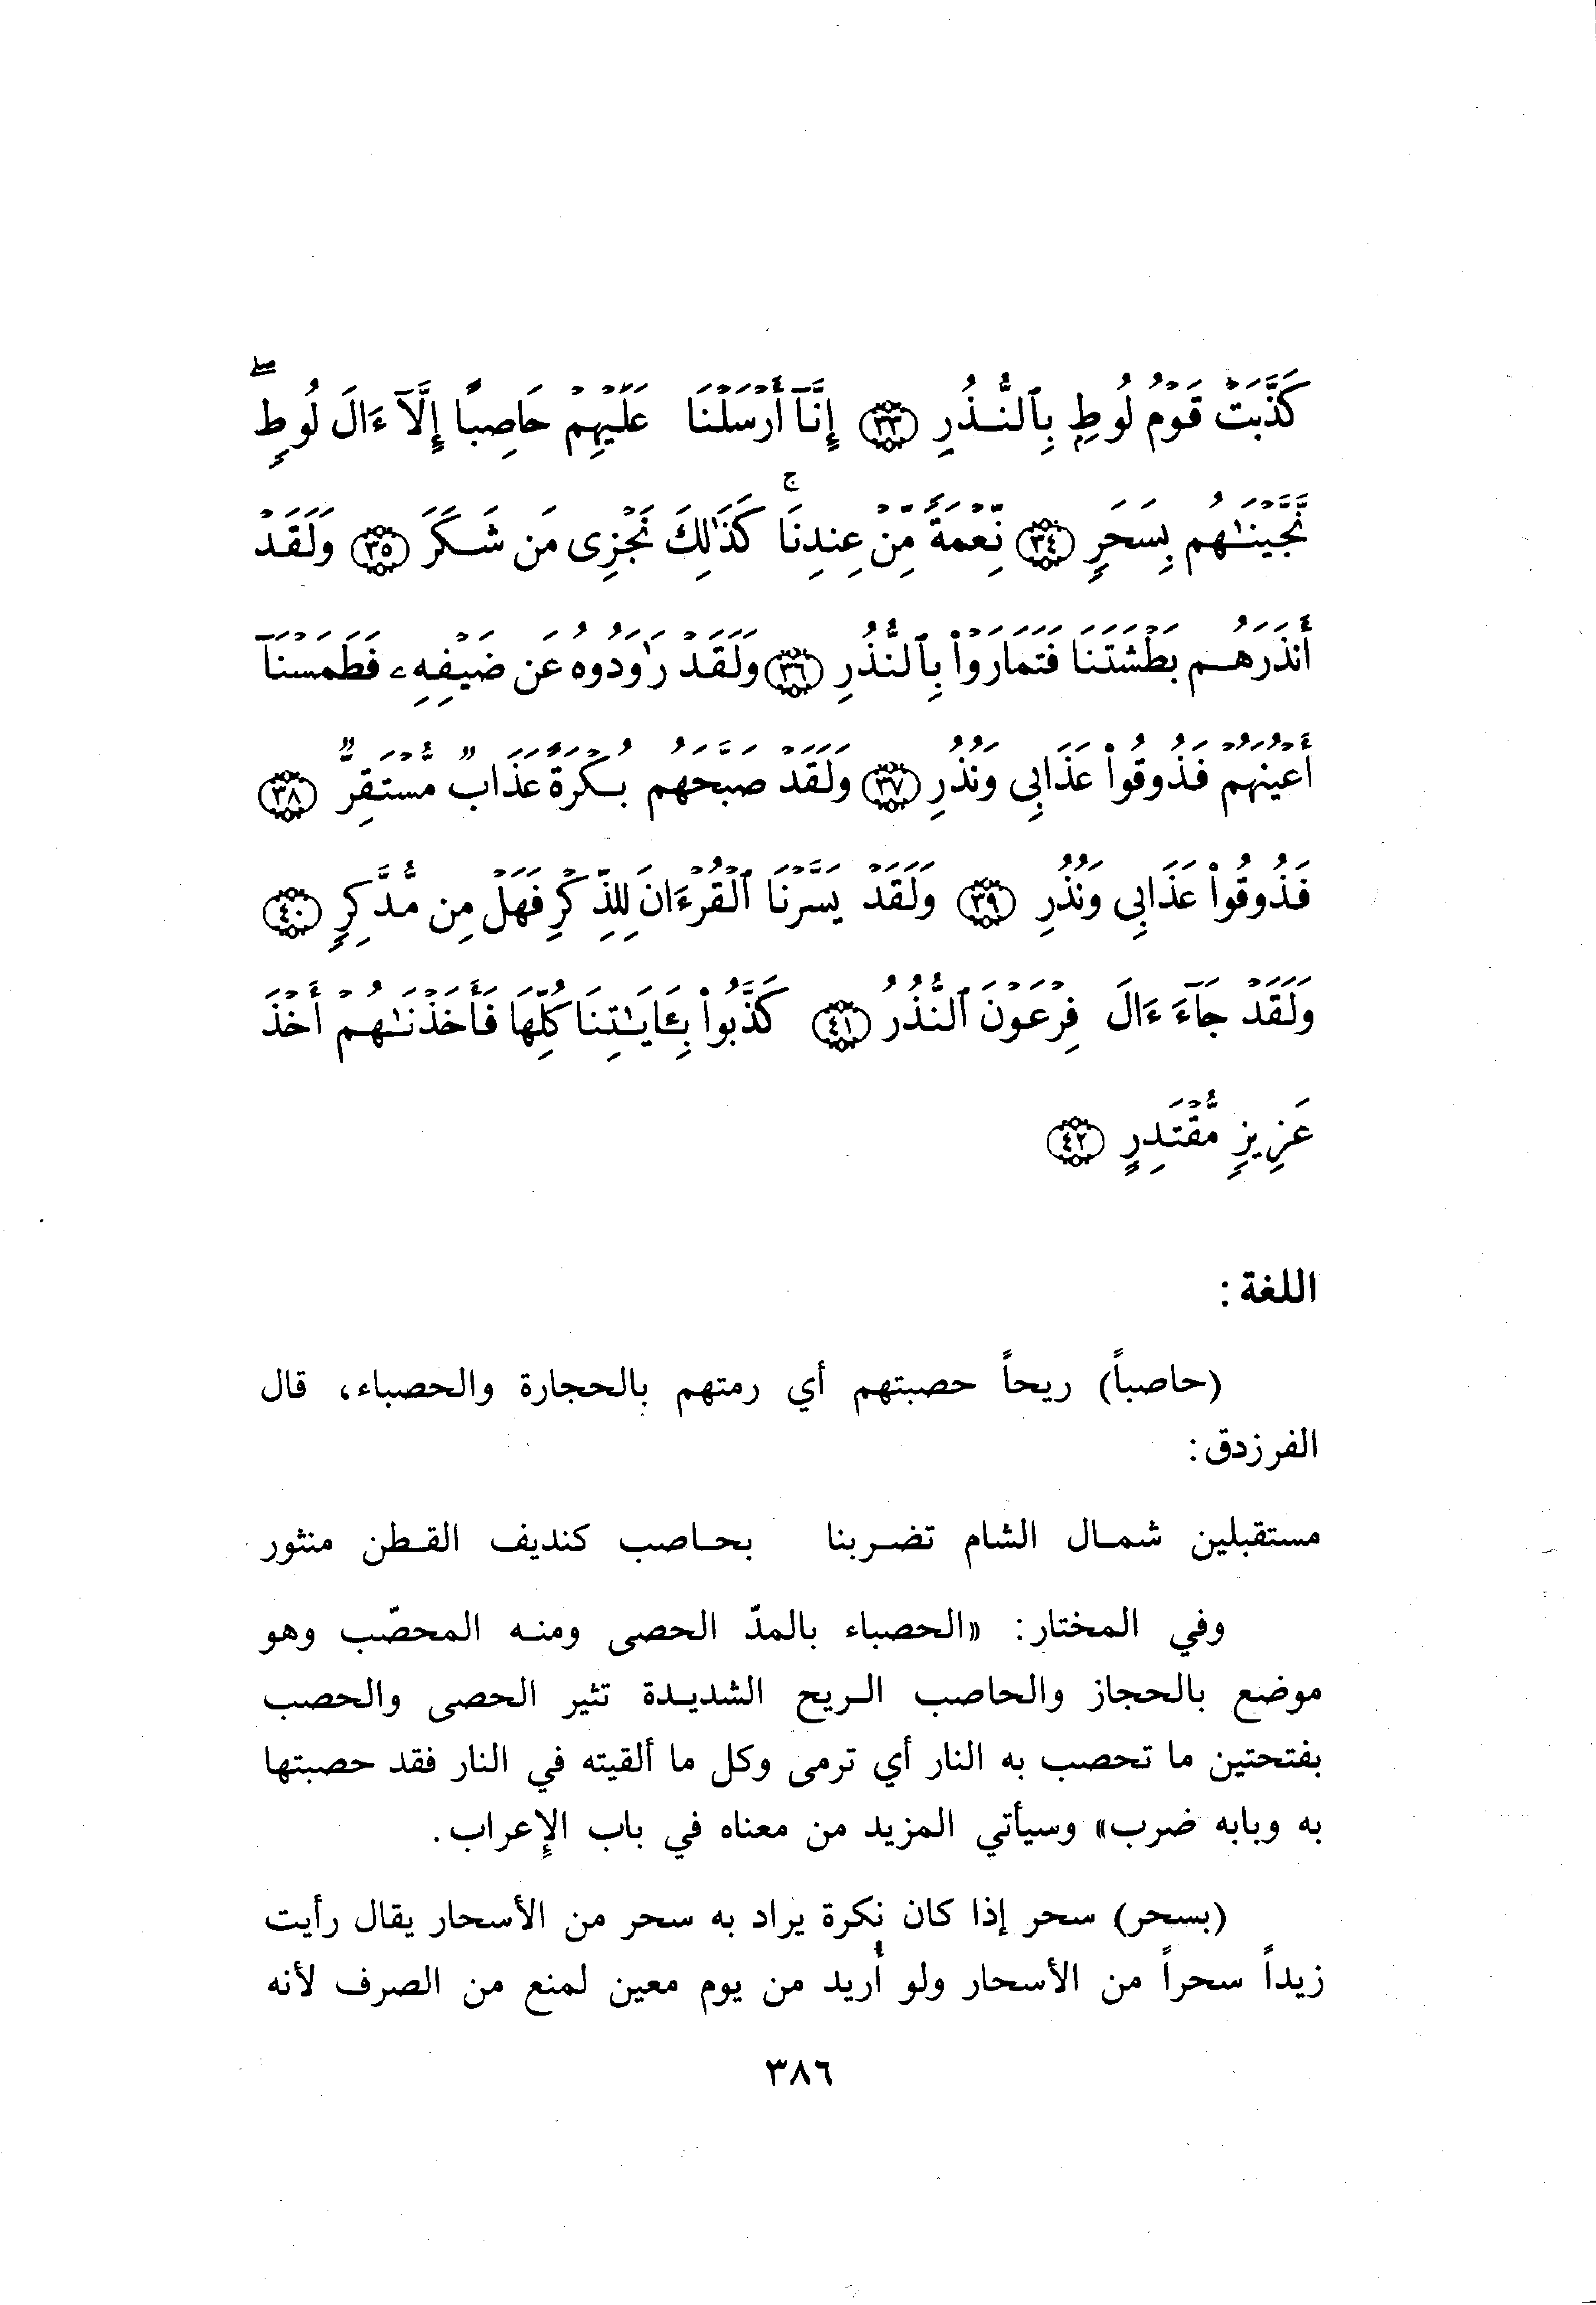 كَذَّبَتْ قَوْمُ لُوطٍ بِٱلنُّذُرِ ٣٣ إِنَّآ أَرْسَلْنَا عَلَيْهِمْ حَاصِبًا إِلَّآ ءَالَ لُوطٍ ۖ
نَّجَّيْنَٰهُم بِسَحَرٍ ٣٤ نِّعْمَةً مِّنْ عِندِنَا ۚ كَذَٰلِكَ نَجْزِى مَن شَكَرَ ٣٥ وَلَقَدْ
أَنذَرَهُم بَطْشَتَنَا فَتَمَارَوْا۟ بِٱلنُّذُرِ ٣٦ وَلَقَدْ رَٰوَدُوهُ عَن ضَيْفِهِۦ فَطَمَسْنَآ
أَعْيُنَهُمْ فَذُوقُوا۟ عَذَابِى وَنُذُرِ ٣٧ وَلَقَدْ صَبَّحَهُم بُكْرَةً عَذَابٌ مُّسْتَقِرٌّ ٣٨
فَذُوقُوا۟ عَذَابِى وَنُذُرِ ٣٩ وَلَقَدْ يَسَّرْنَا ٱلْقُرْءَانَ لِلذِّكْرِ فَهَلْ مِن مُّدَّكِرٍ ٤٠
وَلَقَدْ جَآءَ ءَالَ فِرْعَوْنَ ٱلنُّذُرُ ٤١ كَذَّبُوا۟ بِـَٔايَٰتِنَا كُلِّهَا فَأَخَذْنَٰهُمْ أَخْذَ
عَزِيزٍ مُّقْتَدِرٍ ٤٢
اللغة :
(حاصباً) ريحاً حصبتهم أي رمتهم بالحجارة والحصباء، قال
الفرزدق :
مستقبلين شمال الشام تضربنا بحاصب كنديف القطن منثور
وفي المختار: «الحصباء بالمدّ الحصى ومنه المحصّب وهو
موضع بالحجاز والحاصب الريح الشديدة تثير الحصى والحصب
بفتحتين ما تحصب به النار أي ترمى وكل ما ألقيته في النار فقد حصبتها
به وبابه ضرب» وسيأتي المزيد من معناه في باب الإعراب.
(بسحر) سحر إذا كان نكرة يراد به سحر من الأسحار يقال رأيت
زيداً سحراً من الأسحار ولو أُريد من يوم معين لمنع من الصرف لأنه
٣٨٦